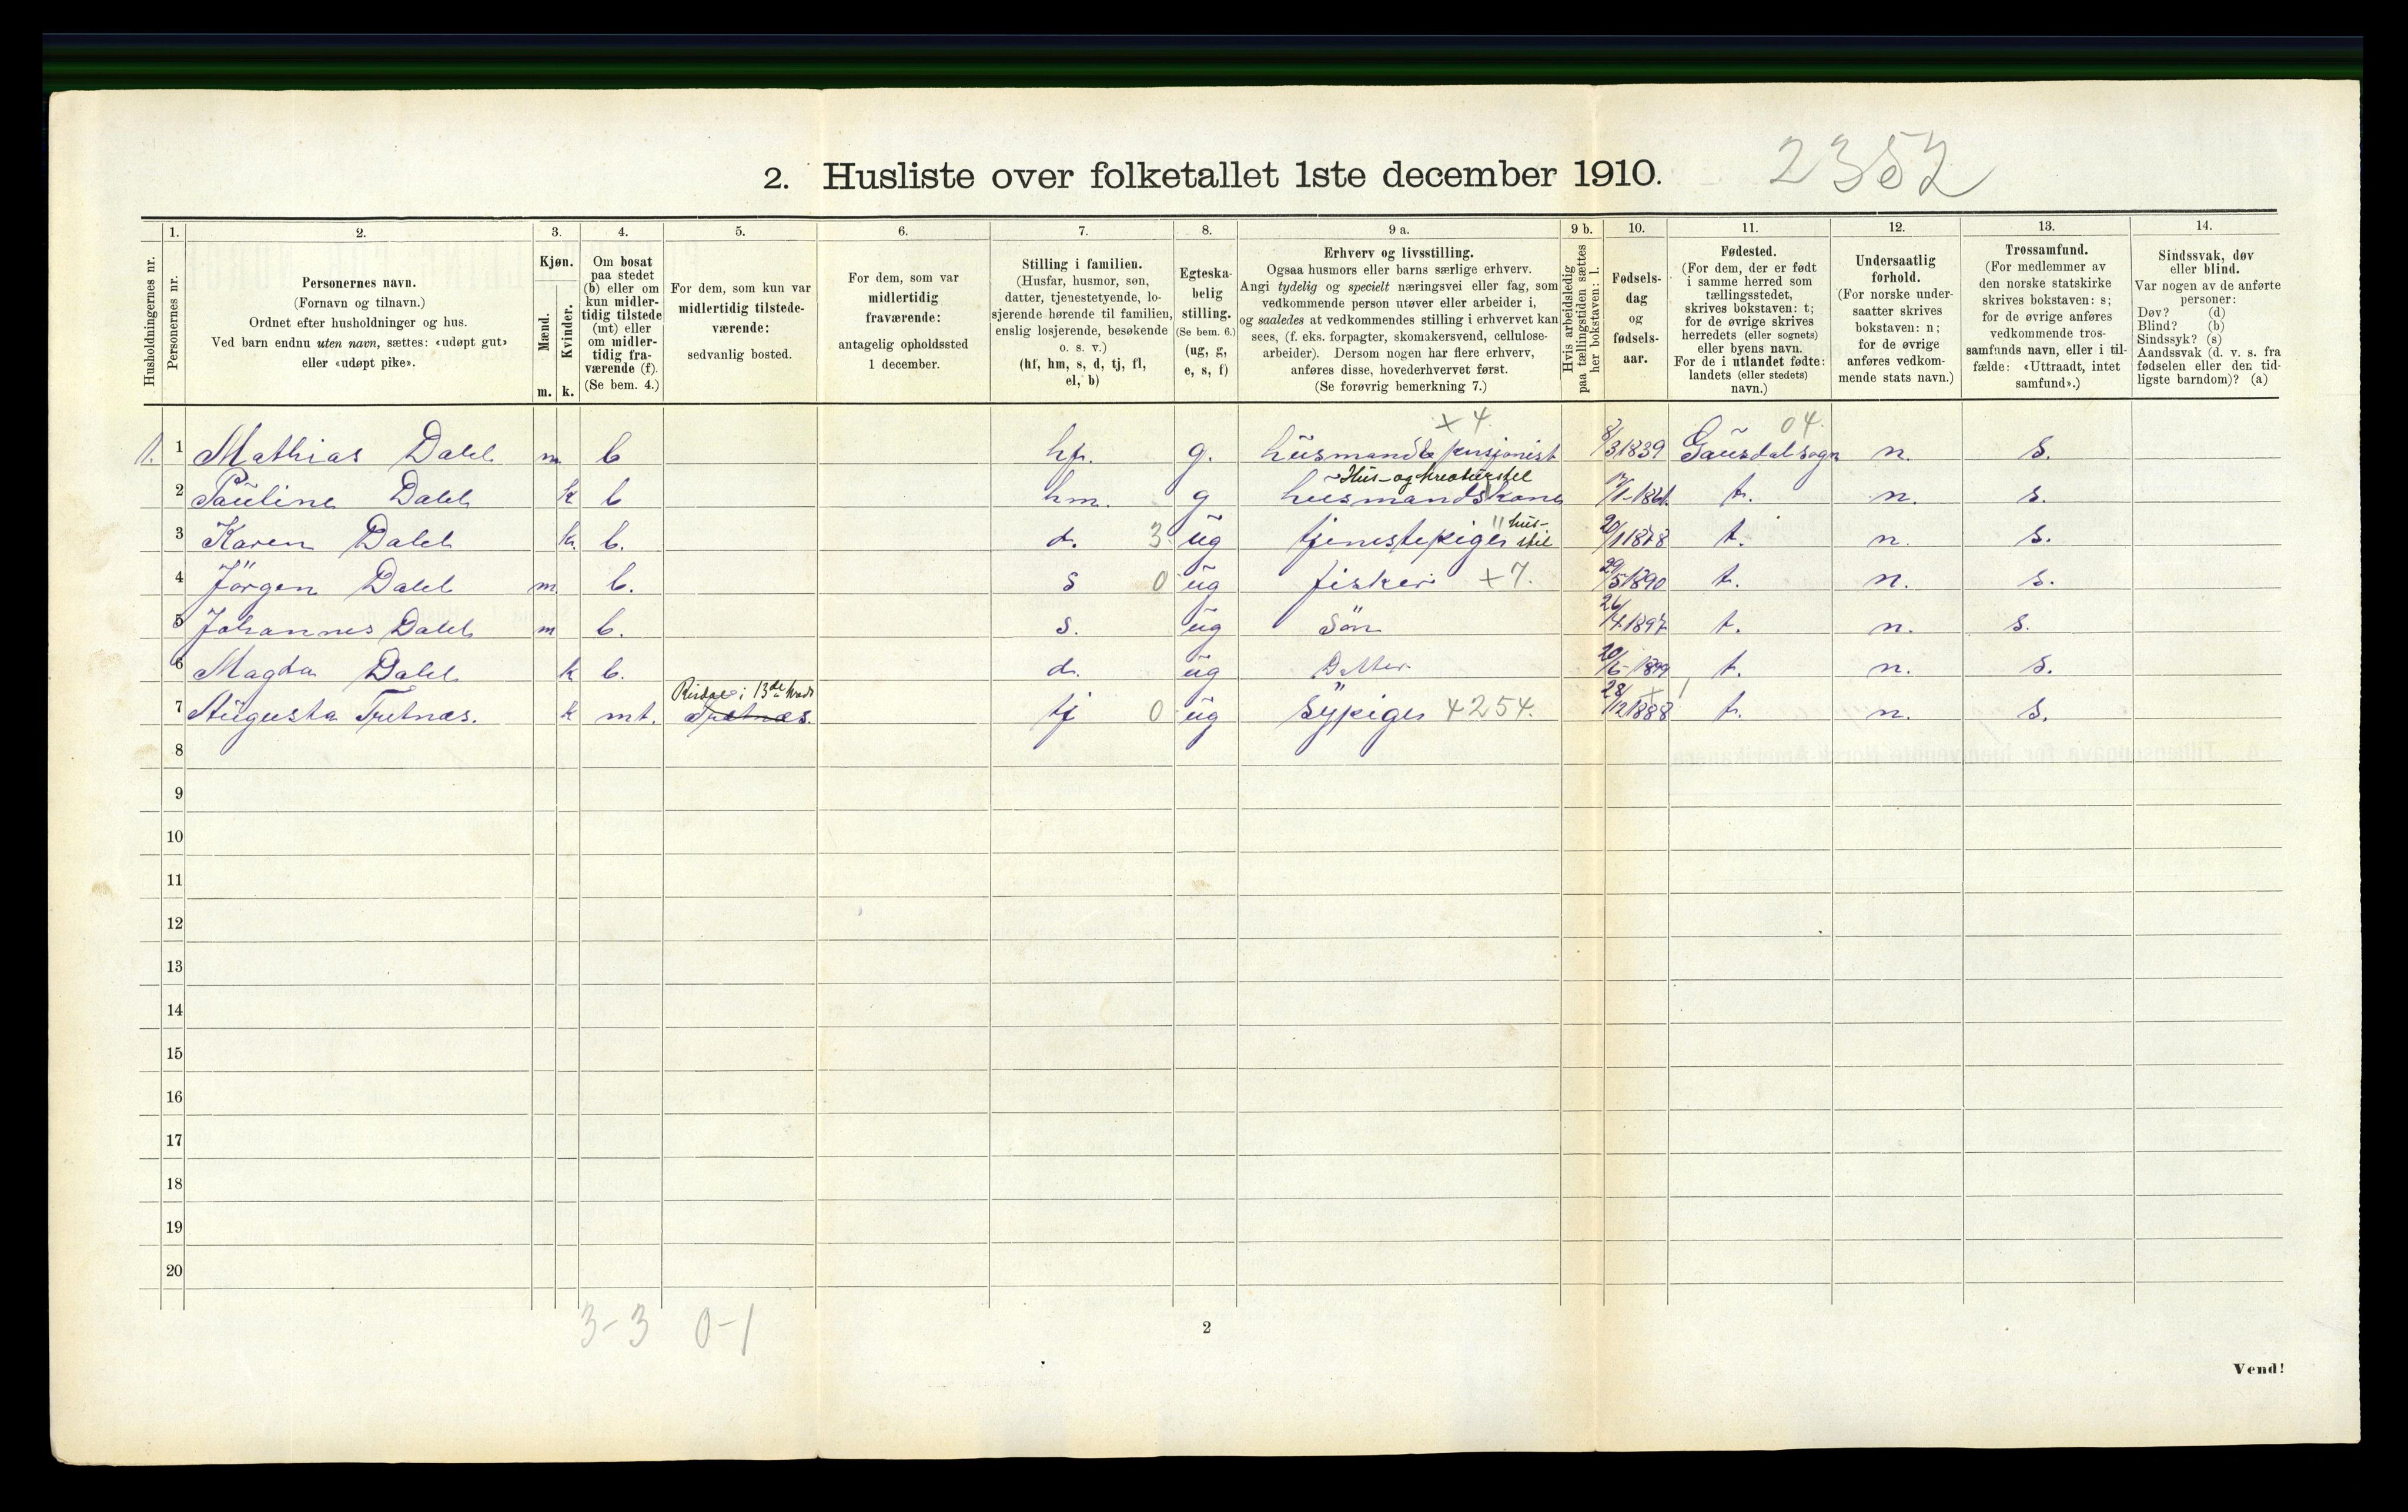 2. Husliste over folketallet 1ste december 1910. 2352
Husholdningernes nr.
1. Personernes nr.
2. Personernes navn. (Fornavn og tilnavn.) Ordnet efter husholdninger og hus. Ved barn endnu uten navn, sættes: «udøpt gut» eller «udøpt pike».
3. Kjøn. Mænd. m. Kvinder. k.
4. Om bosat paa stedet (b) eller om kun midlertidig tilstede (mt) eller om midlertidig fraværende (f). (Se bem. 4.)
5. For dem, som kun var midlertidig tilstedeværende: sedvanlig bosted.
6. For dem, som var midlertidig fraværende: antagelig opholdssted 1 december.
7. Stilling i familien. (Husfar, husmor, søn, datter, tjenestetyende, losjerende hørende til familien, enslig losjerende, besøkende o. s. v.) (hf, hm, s, d, tj, fl, el, b)
8. Egteskabelig stilling. (Se bem. 6.) (ug, g, e, s, f)
9 a. Erhverv og livsstilling. Ogsaa husmors eller barns særlige erhverv. Angi tydelig og specielt næringsvei eller fag, som vedkommende person utøver eller arbeider i, og saaledes at vedkommendes stilling i erhvervet kan sees, (f. eks. forpagter, skomakersvend, cellulosearbeider). Dersom nogen har flere erhverv, anføres disse, hovederhvervet først. (Se forøvrig bemerkning 7.)
9 b. Hvis arbeidsledig paa tællingstiden sættes her bokstaven: l.
10. Fødselsdag og fødselsaar.
11. Fødested. (For dem, der er født i samme herred som tællingsstedet, skrives bokstaven: t; for de øvrige skrives herredets (eller sognets) eller byens navn. For de i utlandet fødte: landets (eller stedets) navn.)
12. Undersaatlig forhold. (For norske undersaatter skrives bokstaven: n; for de øvrige anføres vedkommende stats navn.)
13. Trossamfund. (For medlemmer av den norske statskirke skrives bokstaven: s; for de øvrige anføres vedkommende trossamfunds navn, eller i tilfælde: «Uttraadt, intet samfund».)
14. Sindssvak, døv eller blind. Var nogen av de anførte personer: Døv? (d) Blind? (b) Sindssyk? (s) Aandssvak (d. v. s. fra fødselen eller den tidligste barndom)? (a)
x 4. 04.
1. 1 Mathias Dahl m b hf. g. husmand 8/3 1839 Gausdal sogn n. s.
Hus- og kreaturstel
2 Pauline Dahl k b hm. g husmandskone t. n. s.
3 Karen Dahl k b. d. 3 ug tjenestepige " hus-stel t. n. s.
4 Jörgen Dahl m b. s 0 ug fisker x 7. 29/5 1890 t. n. s.
5 Johannes Dahl m b. s. ug Sön t. n. s.
6 Magda Dahl k b. d. ug Datter t. n. s.
i 13de
7 Augusta Tretnæs. k mt. Tretnæs. tj 0 ug Sypige 4254. 28/12 1888 t. n. s.
8
9
10
11
12
13
14
15
16
17
18
19
20
3-3 0-1
2
Vend!